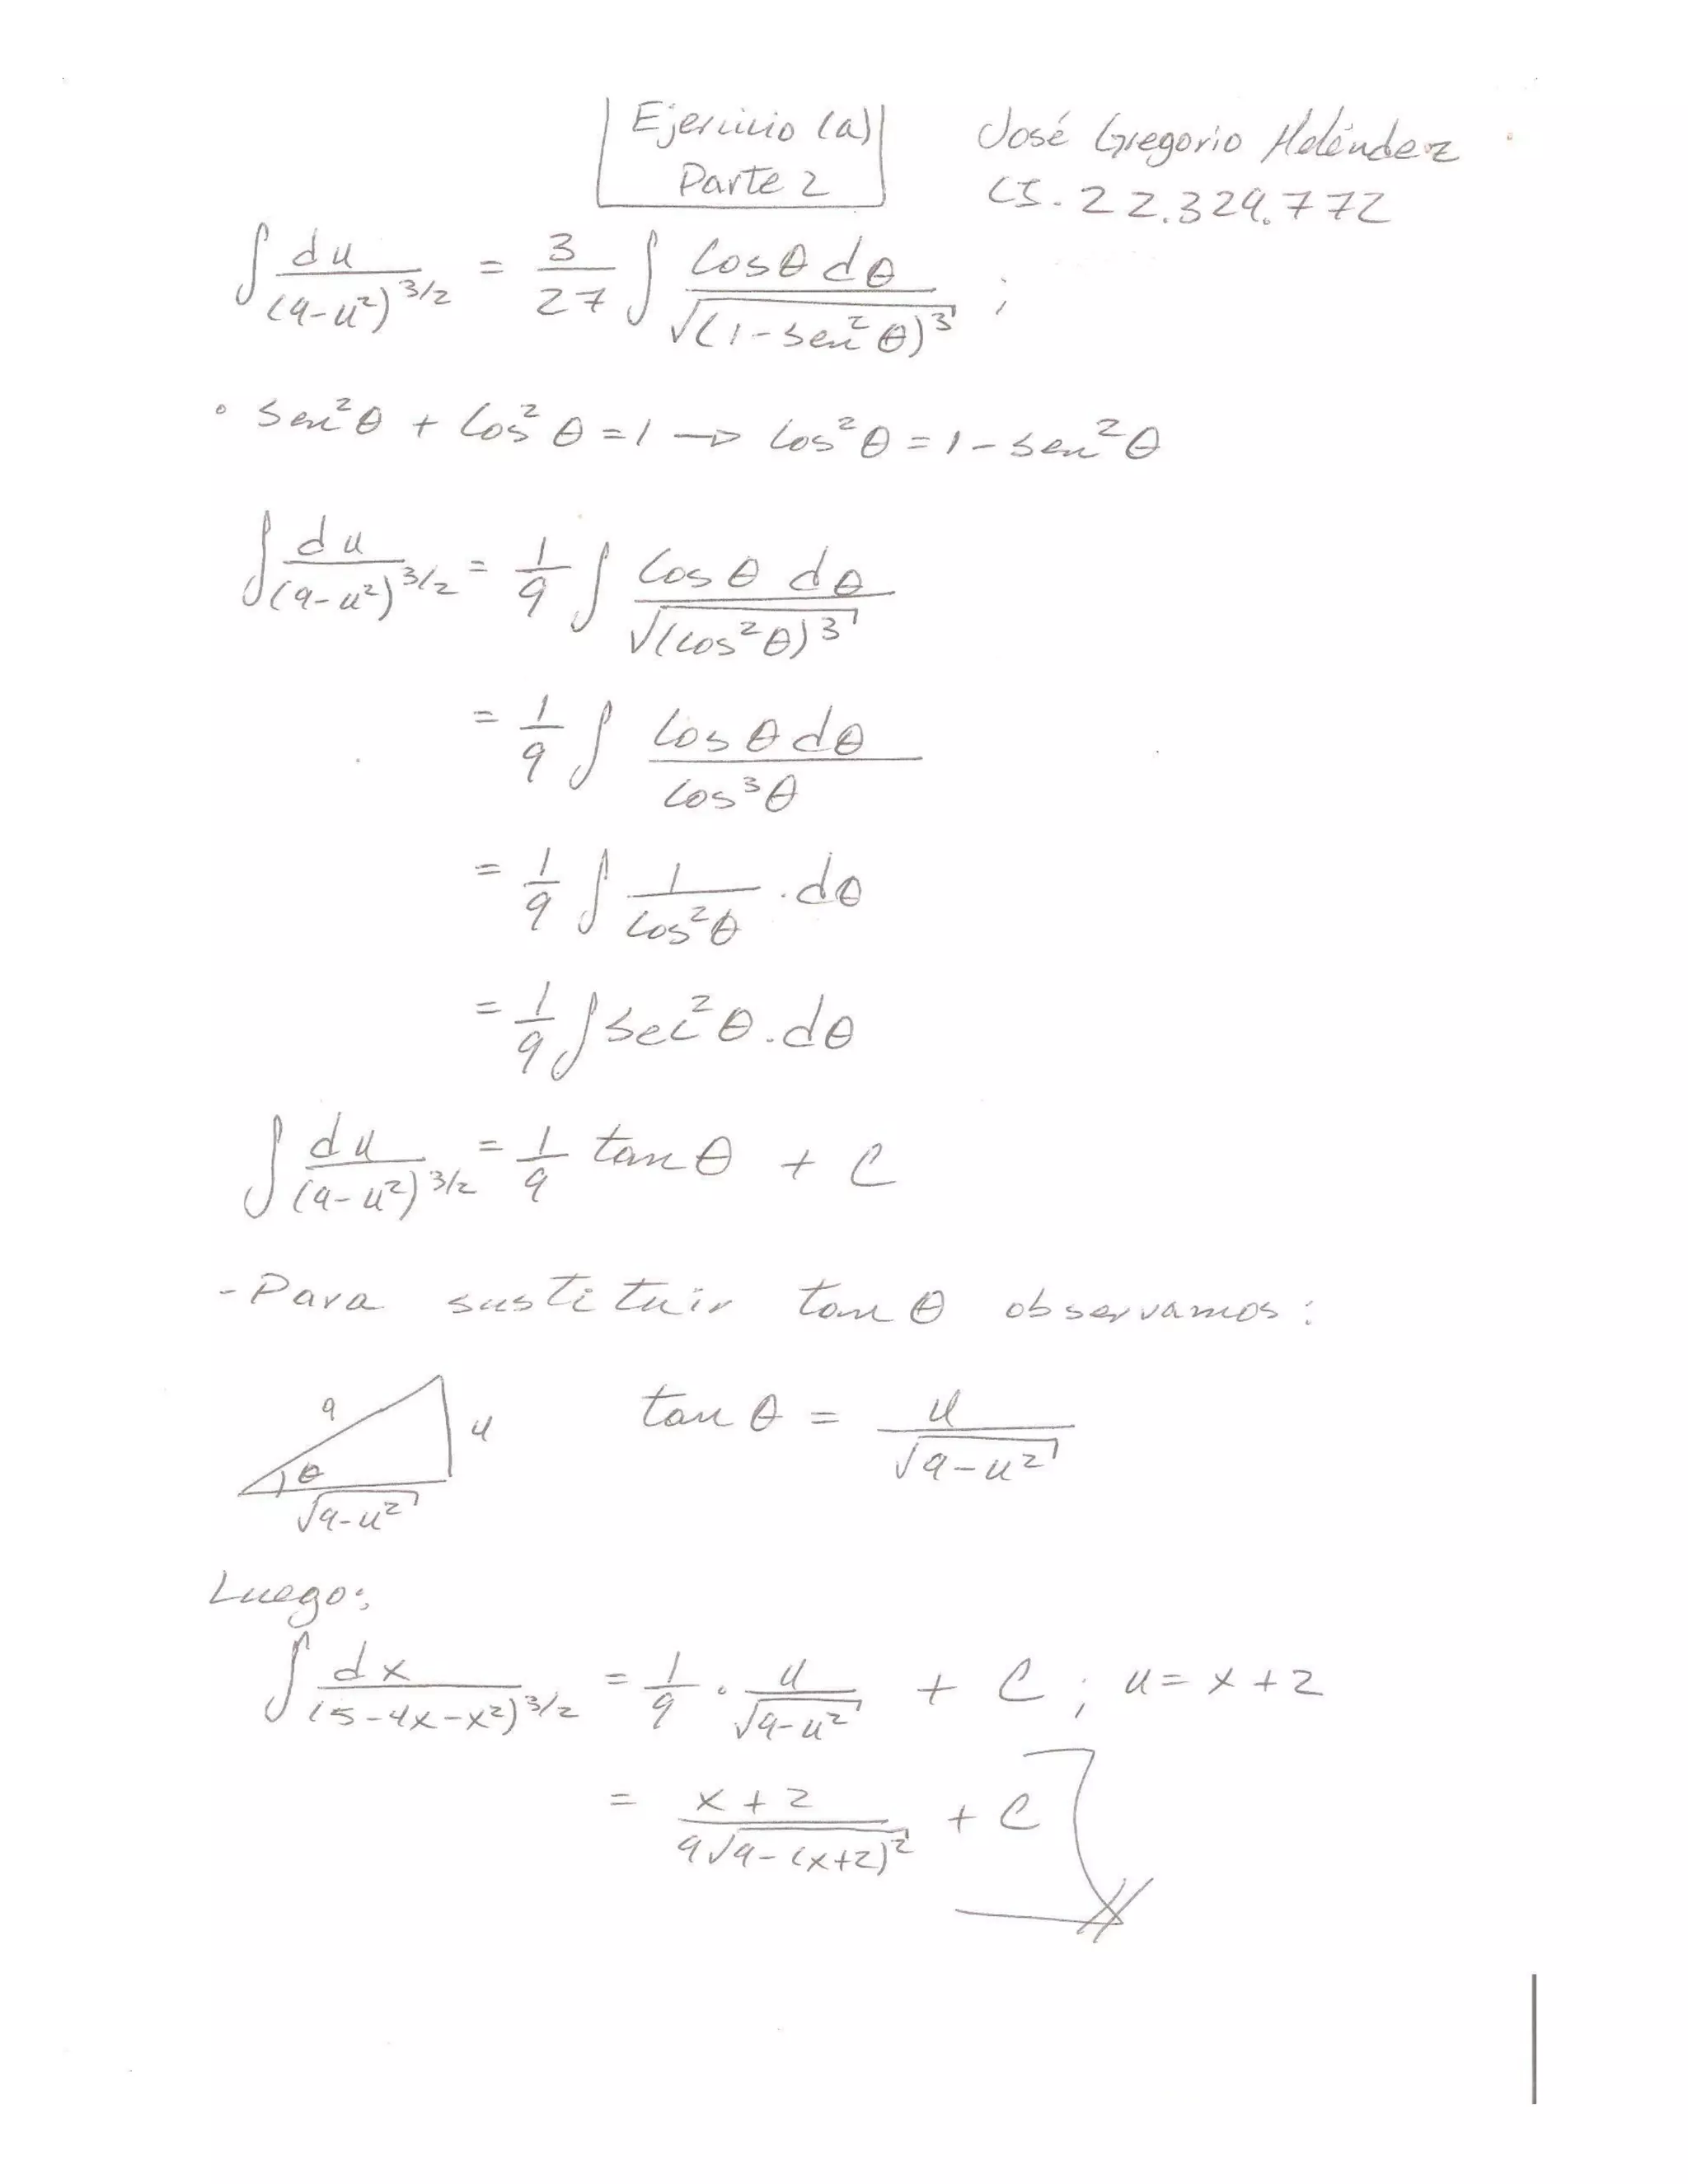 Ejercicio (a)
Parte 2
José Gregorio Meléndez
CI. 22.329.772
∫ du/(9-u²)^3/2 = 3/27 ∫ Cosθ dθ/√(1-sen²θ)³ ;
• Sen²θ + Cos²θ = 1 → Cos²θ = 1 - sen²θ
∫ du/(9-u²)^3/2 = 1/9 ∫ Cosθ dθ/√(cos²θ)³
= 1/9 ∫ Cosθ dθ/cos³θ
= 1/9 ∫ 1/cos²θ . dθ
= 1/9 ∫ Sec²θ . dθ
∫ du/(9-u²)^3/2 = 1/9 tanθ + C
- Para sustituir tanθ observamos:
9
u
θ
√9-u²
tanθ = u/√9-u²
Luego:
∫ dx/(5-4x-x²)^3/2 = 1/9 . u/√9-u² + C ; u = x+2
= x+2/9√9-(x+2)² + C